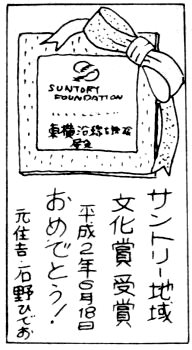 SUNTORY
FOUNDATION
東横沿線を語る
サントリー地域
文化賞受賞
平成2年6月18日
おめでとう!
元住吉・石野ひでお